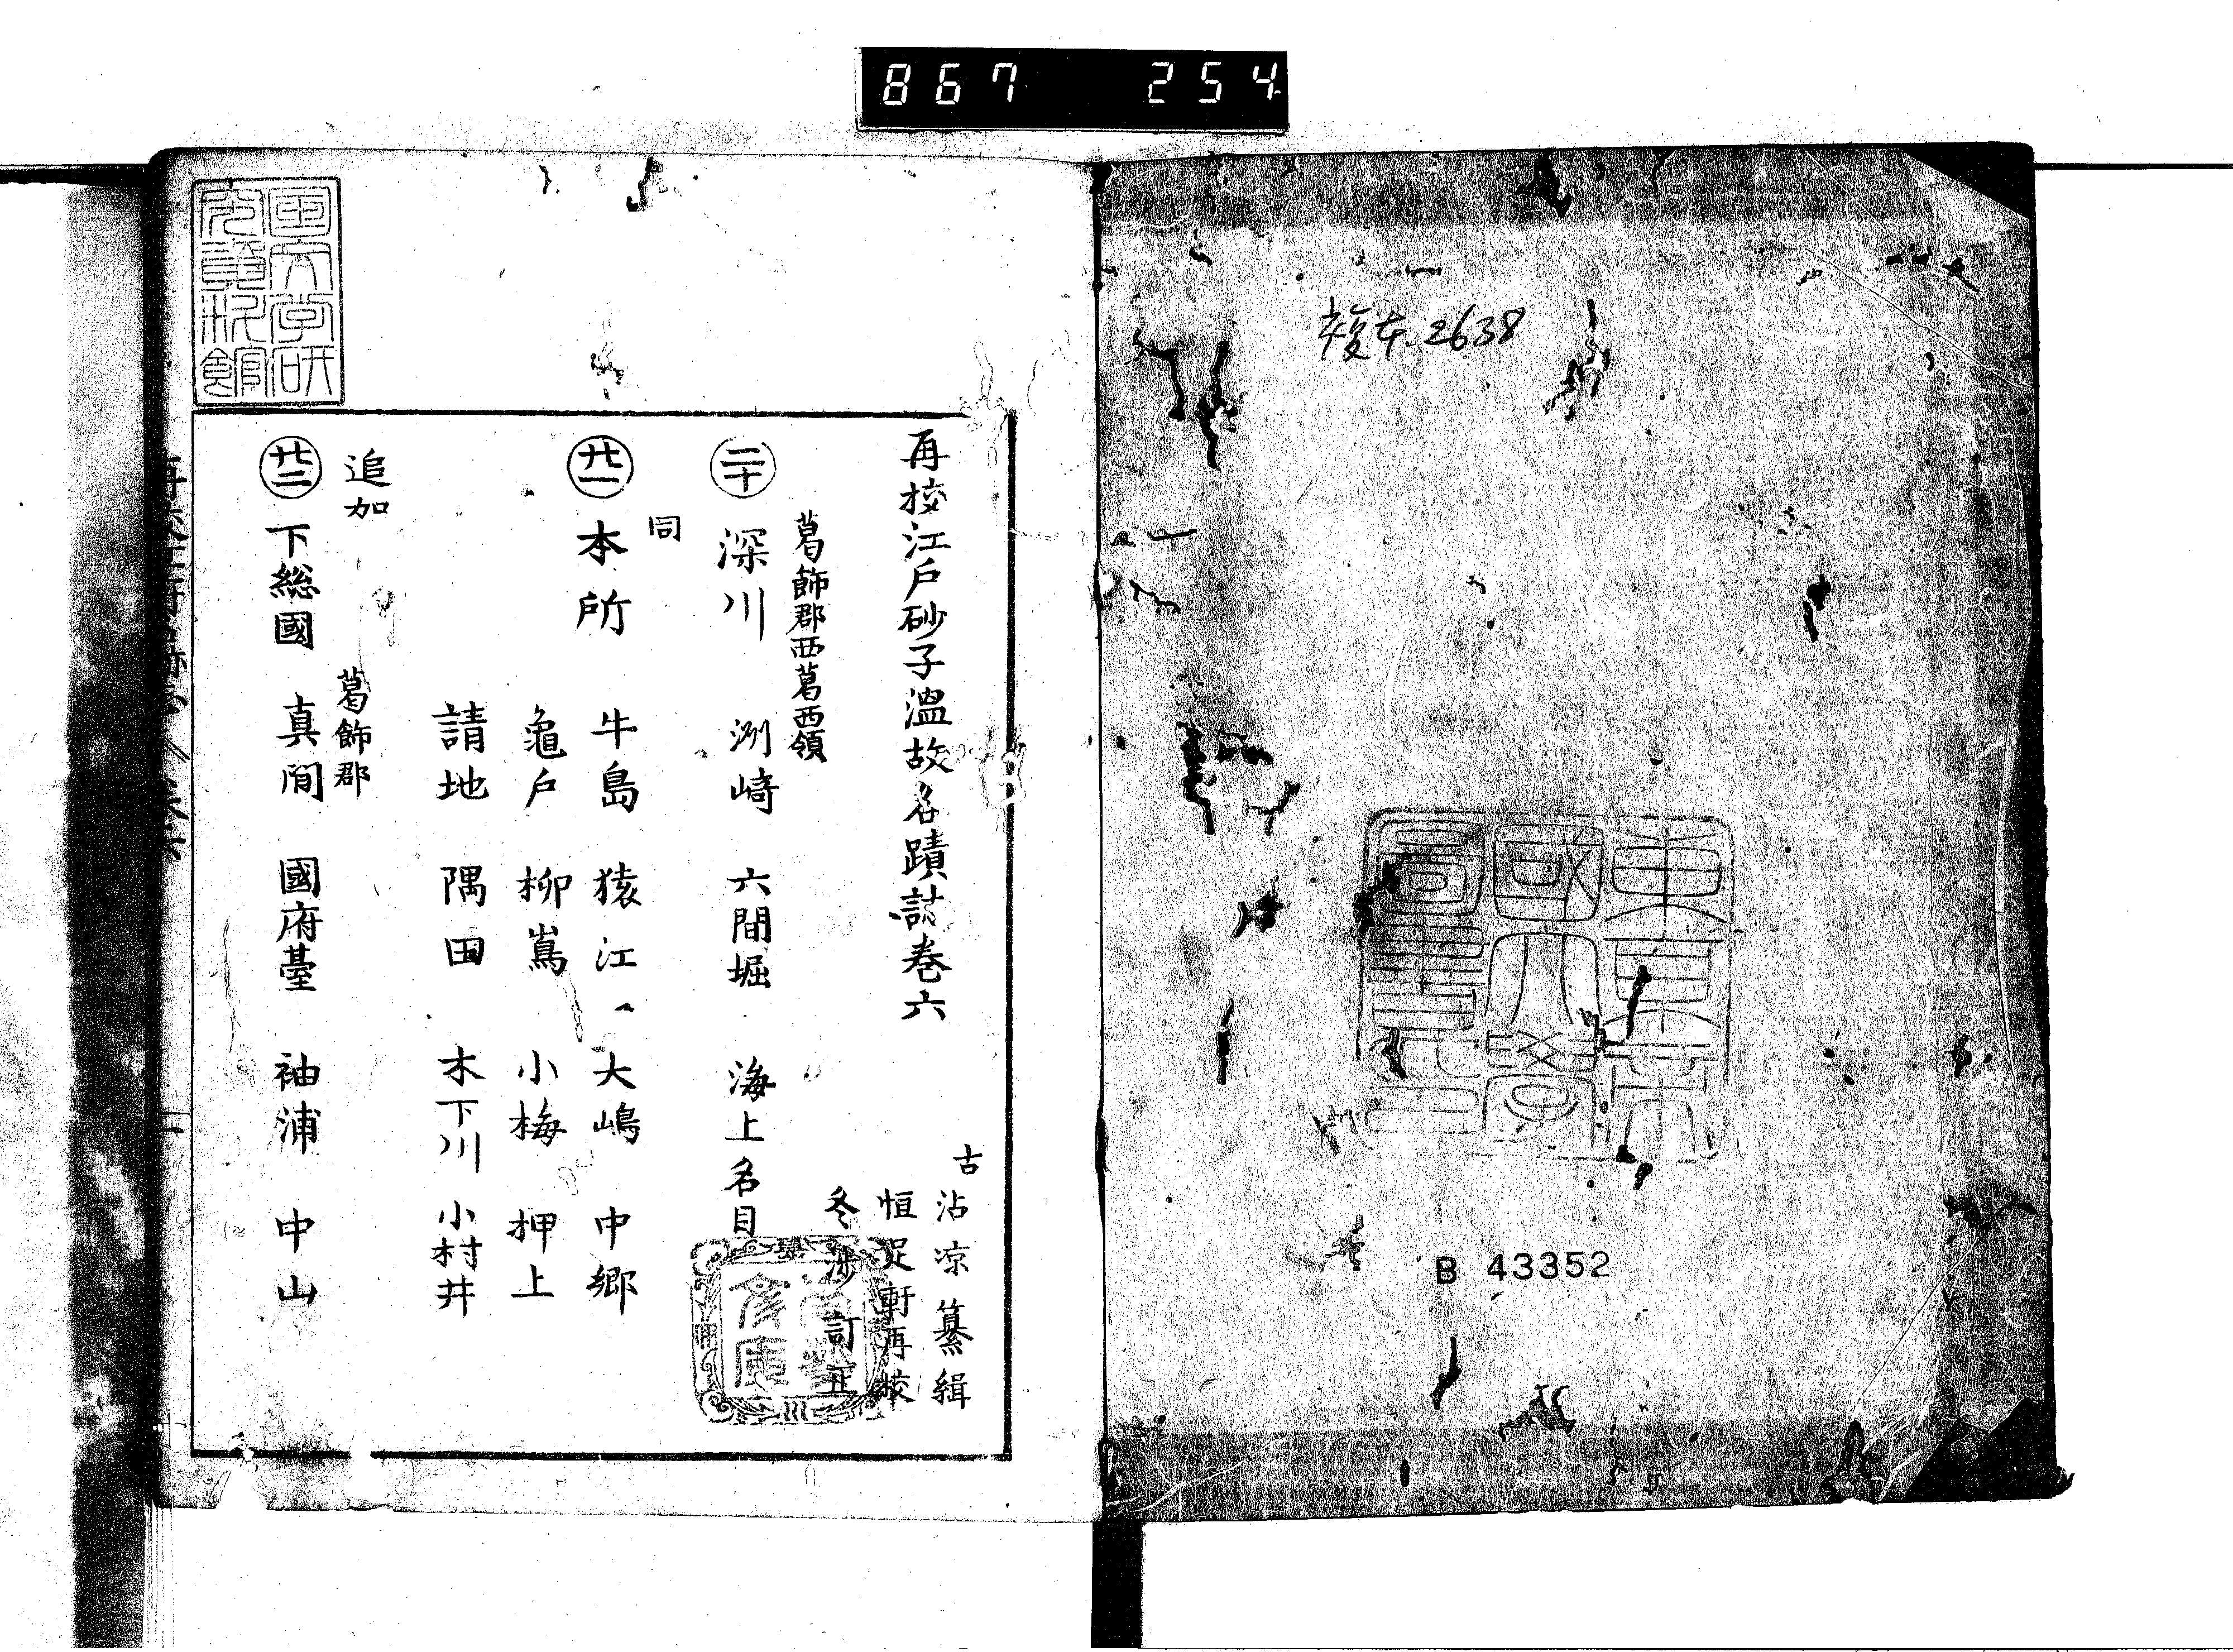 867 254
複本2638
東京帝
國大學
圖書印
B 43352
再校江戸砂子溫故名蹟誌卷六
古沾凉纂緝
恒足軒再校
冬渉訂正
葛飾郡西葛西領
二十 深川 洲崎 六間堀 海上名目
同
廿一 本所 牛島 猿江 大嶋 中郷
龜戸 柳嶌 小梅 押上
請地 隅田 木下川 小村井
追加
葛飾郡
廿二 下総國 真間 國府臺 袖浦 中山
国文学研
究資料館